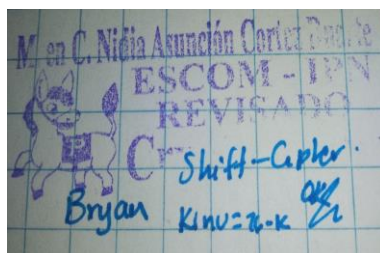 M. en C. Nidia Asunción Cortez
ESCOM - IPN
REVISADO
Shift-Cipher.
Bryan
Kinv = n-k